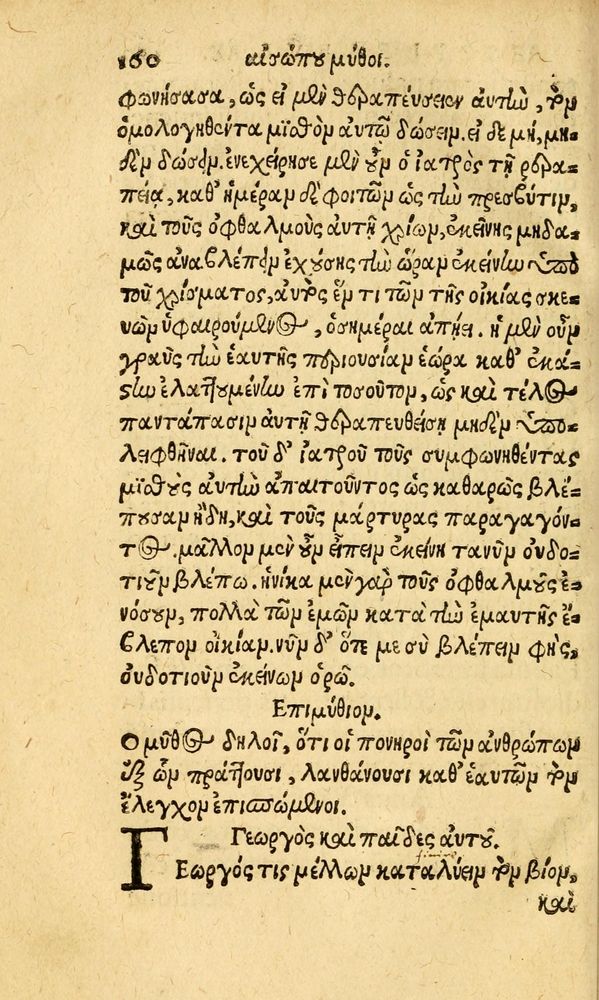 160 αἰσώπου μῦθοι.
φωνήσασα, ὡς εἰ μὲν θεραπεύσειεν αὐτὴν, τὸν
ὁμολογηθέντα μισθὸν αὐτῷ δώσειν. εἰ δὲ μή, μη-
δὲν δώσειν. ἐνεχείρησε μὲν οὖν ὁ ἰατρὸς τῇ θερα-
πείᾳ, καθ' ἡμέραν δὲ φοιτῶν ὡς τὴν πρεσβύτιν,
καὶ τοὺς ὀφθαλμοὺς αὐτῇ χρίων, ἐκείνης μηδα-
μῶς ἀναβλέπειν ἐχούσης τὴν ὥραν ἐκείνην ὑπὸ
τοῦ χρίσματος, αὐτὸς ἕν τι τῶν τῆς οἰκίας σκε-
υῶν ὑφαιρούμενος, ὁσημέραι ἀπῄει. ἡ μὲν οὖν
γραῦς τὴν ἑαυτῆς περιουσίαν ἑώρα καθ' ἑκά-
στην ἐλαττουμένην ἐπὶ τοσοῦτον, ὡς καὶ τέλος
παντάπασιν αὐτῇ θεραπευθείσῃ μηδὲν ὑπο-
λειφθῆναι. τοῦ δ' ἰατροῦ τοὺς συμφωνηθέντας
μισθοὺς αὐτὴν ἀπαιτοῦντος ὡς καθαρῶς βλέ-
πουσαν ἤδη, καὶ τοὺς μάρτυρας παραγαγόν-
τος. μᾶλλον μὲν οὖν εἶπεν ἐκείνη τανῦν οὐδο-
τιοῦν βλέπω. ἡνίκα μὲν γὰρ τοὺς ὀφθαλμοὺς ἐ-
νόσουν, πολλὰ τῶν ἐμῶν κατὰ τὴν ἐμαυτῆς ἔ-
βλεπον οἰκίαν. νῦν δ' ὅτε με σὺ βλέπειν φῄς,
οὐδοτιοῦν ἐκείνων ὁρῶ.
Ἐπιμύθιον.
Ὁ μῦθος δηλοῖ, ὅτι οἱ πονηροὶ τῶν ἀνθρώπων
ἐξ ὧν πράττουσι, λανθάνουσι καθ' ἑαυτῶν τὸν
ἔλεγχον ἐπισπώμενοι.
Γεωργὸς καὶ παῖδες αὐτοῦ.
Γεωργός τις μέλλων καταλύειν τὸν βίον,
καὶ